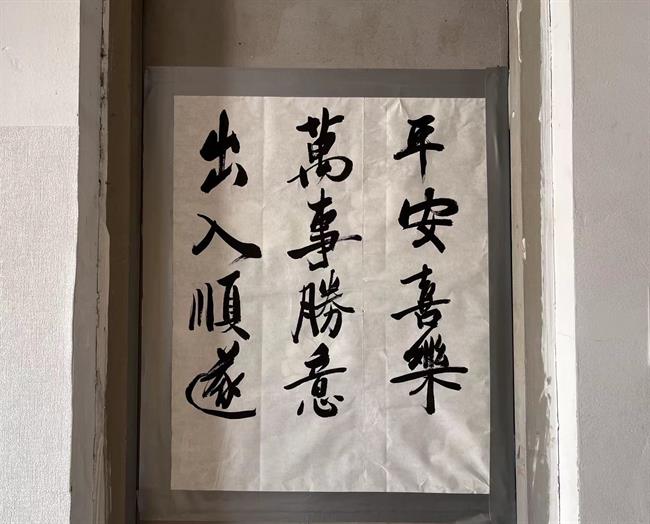 平安喜樂
萬事勝意
出入順遂